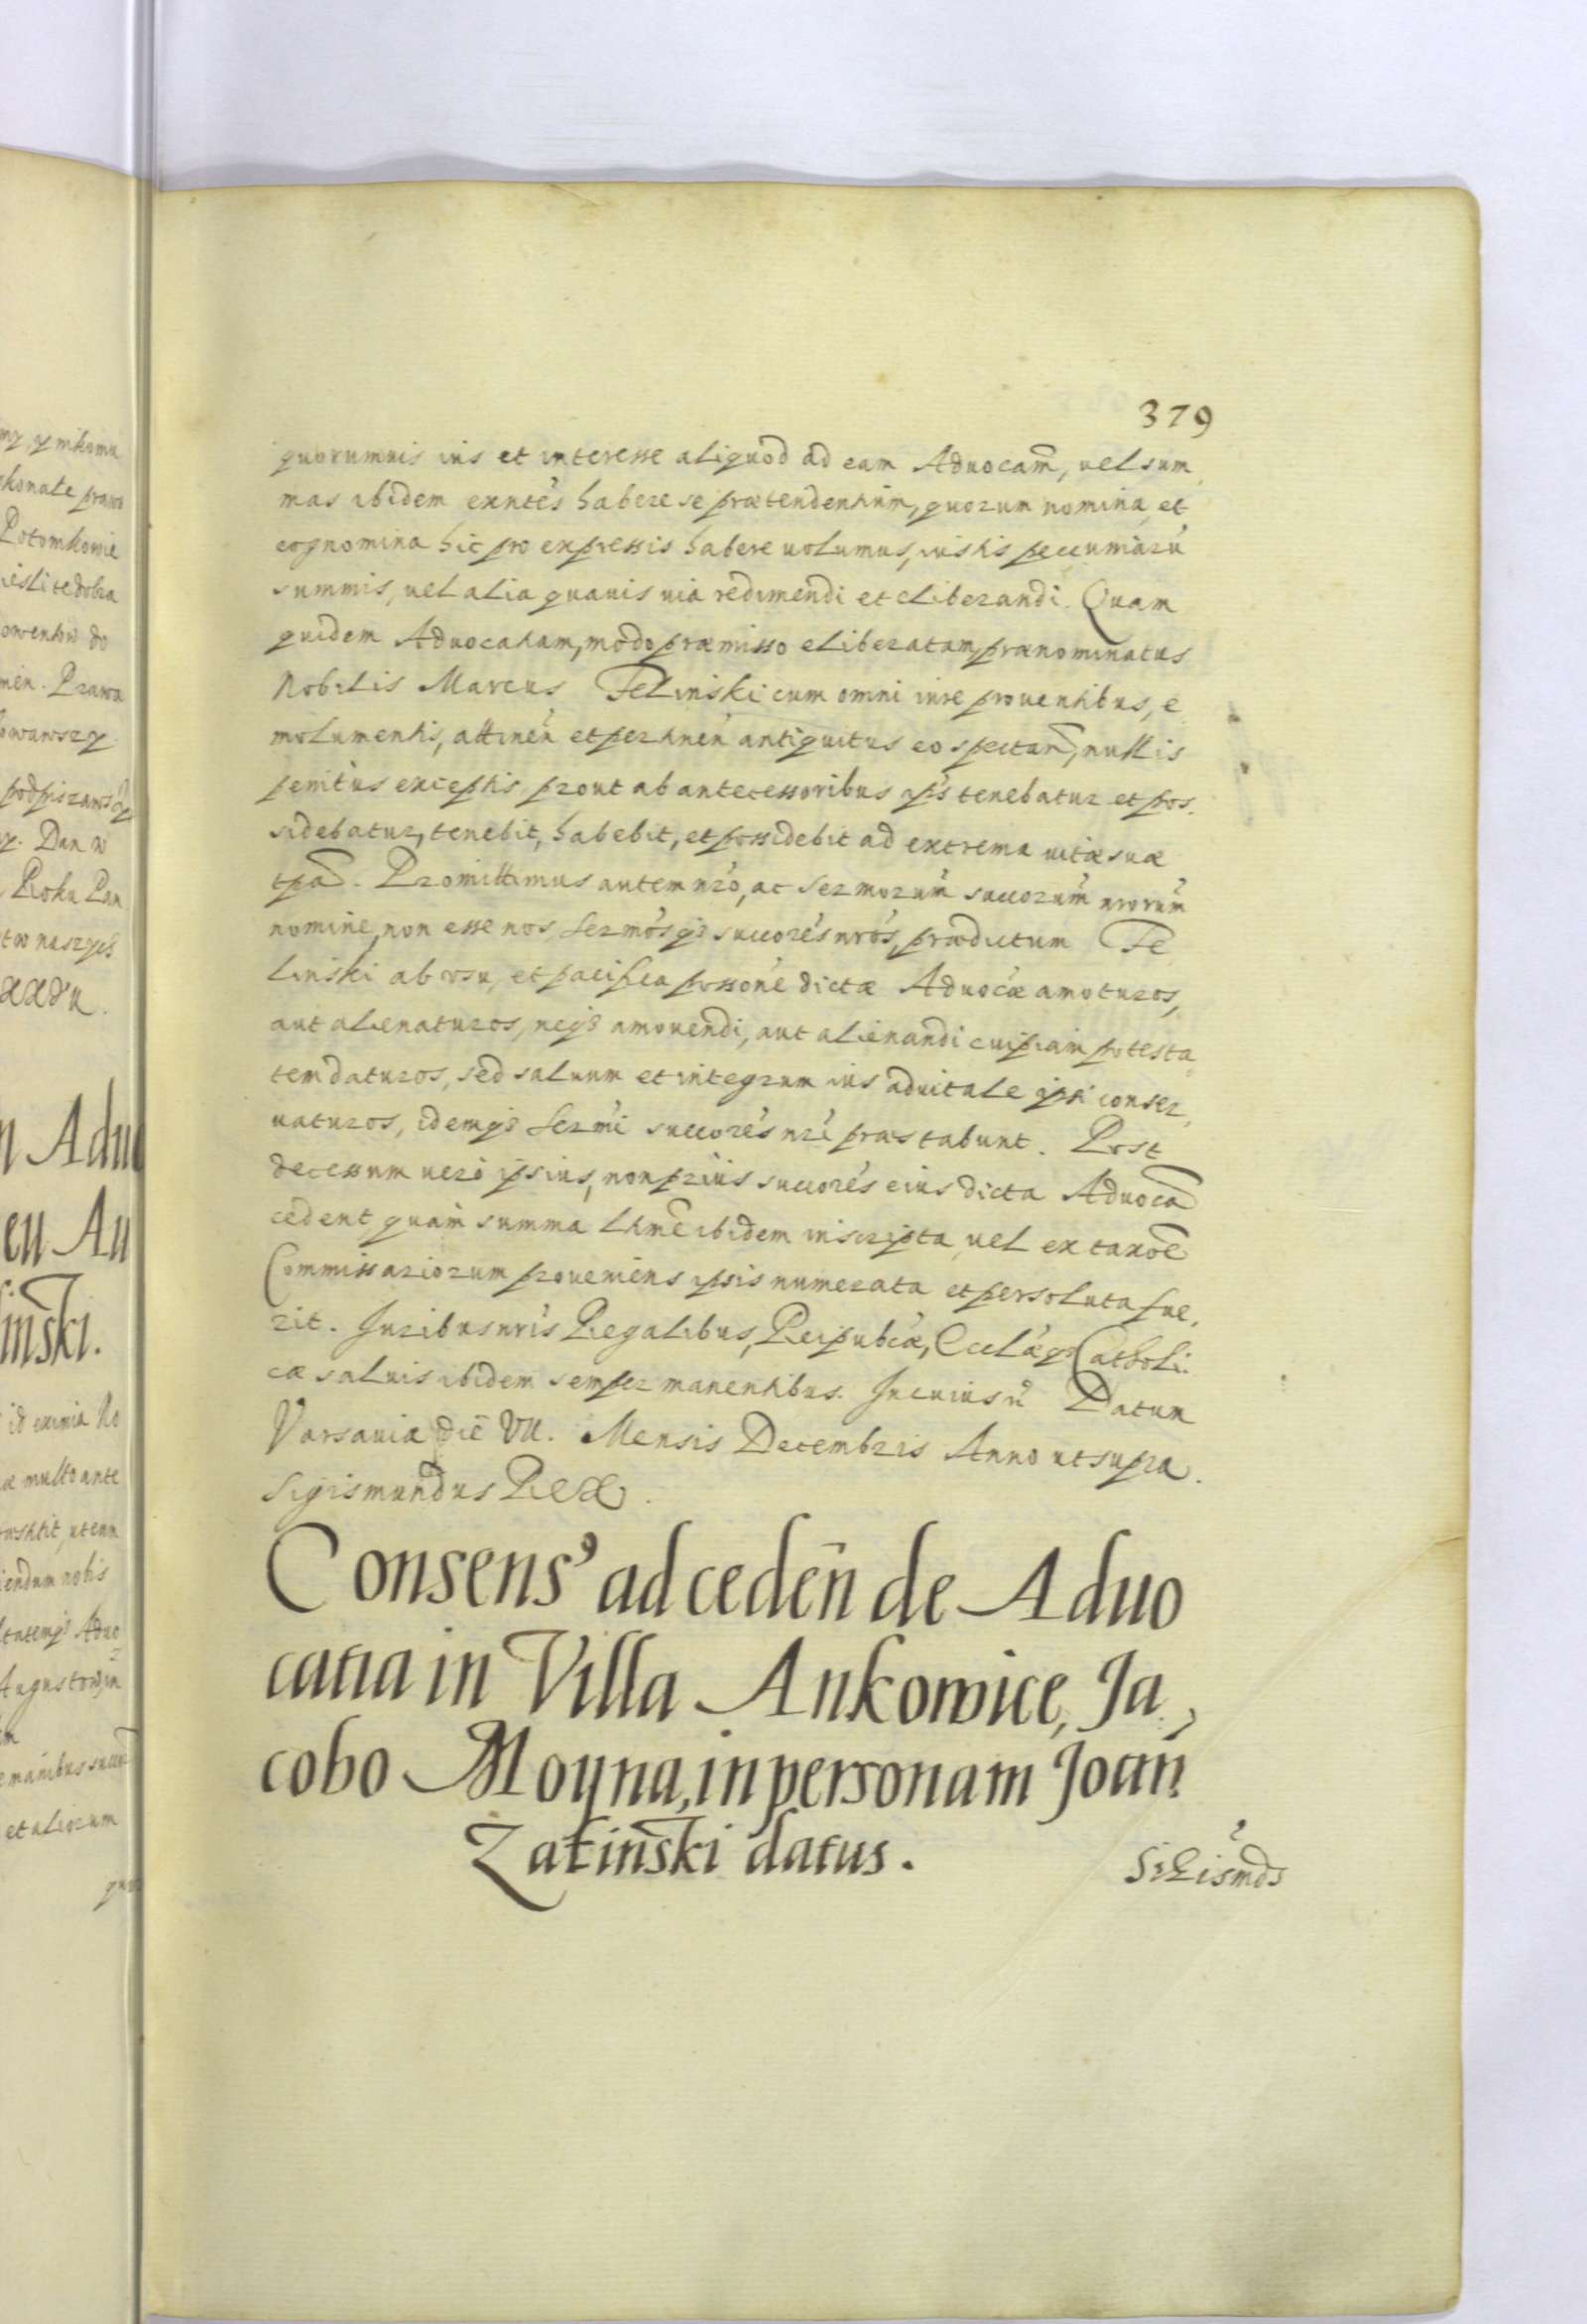 379
quorumuis ius et interesse aliquod ad eam Aduocam̃, uel sum
mas ibidem exntes habere se prætendentium, quorum nomina et
cognomina hic pro expressis habere uolumus, iustis pecuniarũ
summis, uel alia quauis uia redimendi et eliberandi. Quam
quidem Aduocatiam, modo præmisso eliberatam, prænominatus
Nobilis Marcus Felinski cum omni iure prouentibus, e
molumentis, attineñ et pertineñ antiquitus eo spectañ, nullis
penitus exceptis, prout ab antecessoribus ips̃ tenebatur et pos
sidebatur, tenebit, habebit, et possidebit ad extrema uitæ suæ
tpã. Promittimus autem nr̃o, ac Sermorum̃ succorum̃ nrorum̃
nomine, non esse nos, Sermosq̃ succores nros, prædictum Fe
linski ab usu, et pacifica possone dictæ Aduocæ amoturos,
aut alienaturos, neq̃ amouendi, aut alienandi cuipiam potesta
tem daturos, sed saluum et integrum ius aduitale ipsi conser
uaturos, idemq̃ Sermi succores nri præstabunt. Post
decessum uero ipsius, non prius succores eius dicta Aduocã
cedent quam summa ltime ibidem inscripta, uel ex taxõe
Commissariorum proueniens ipsis numerata et persoluta fue,
rit. Juribus nris Regalibus, Reipubcæ, Ecclæq̃ Catholi
cæ saluis ibidem semper manentibus. In cuius r̃ Datum
Varsauiæ die VII. Mensis Decembris Anno ut supra.
Sigismundus Rex.
Consens' ad cedeñ de Aduo
catia in Villa Ankowice, Ja,
cobo Moyna, in personam Joañ
Zalinski datus.
Sigismds